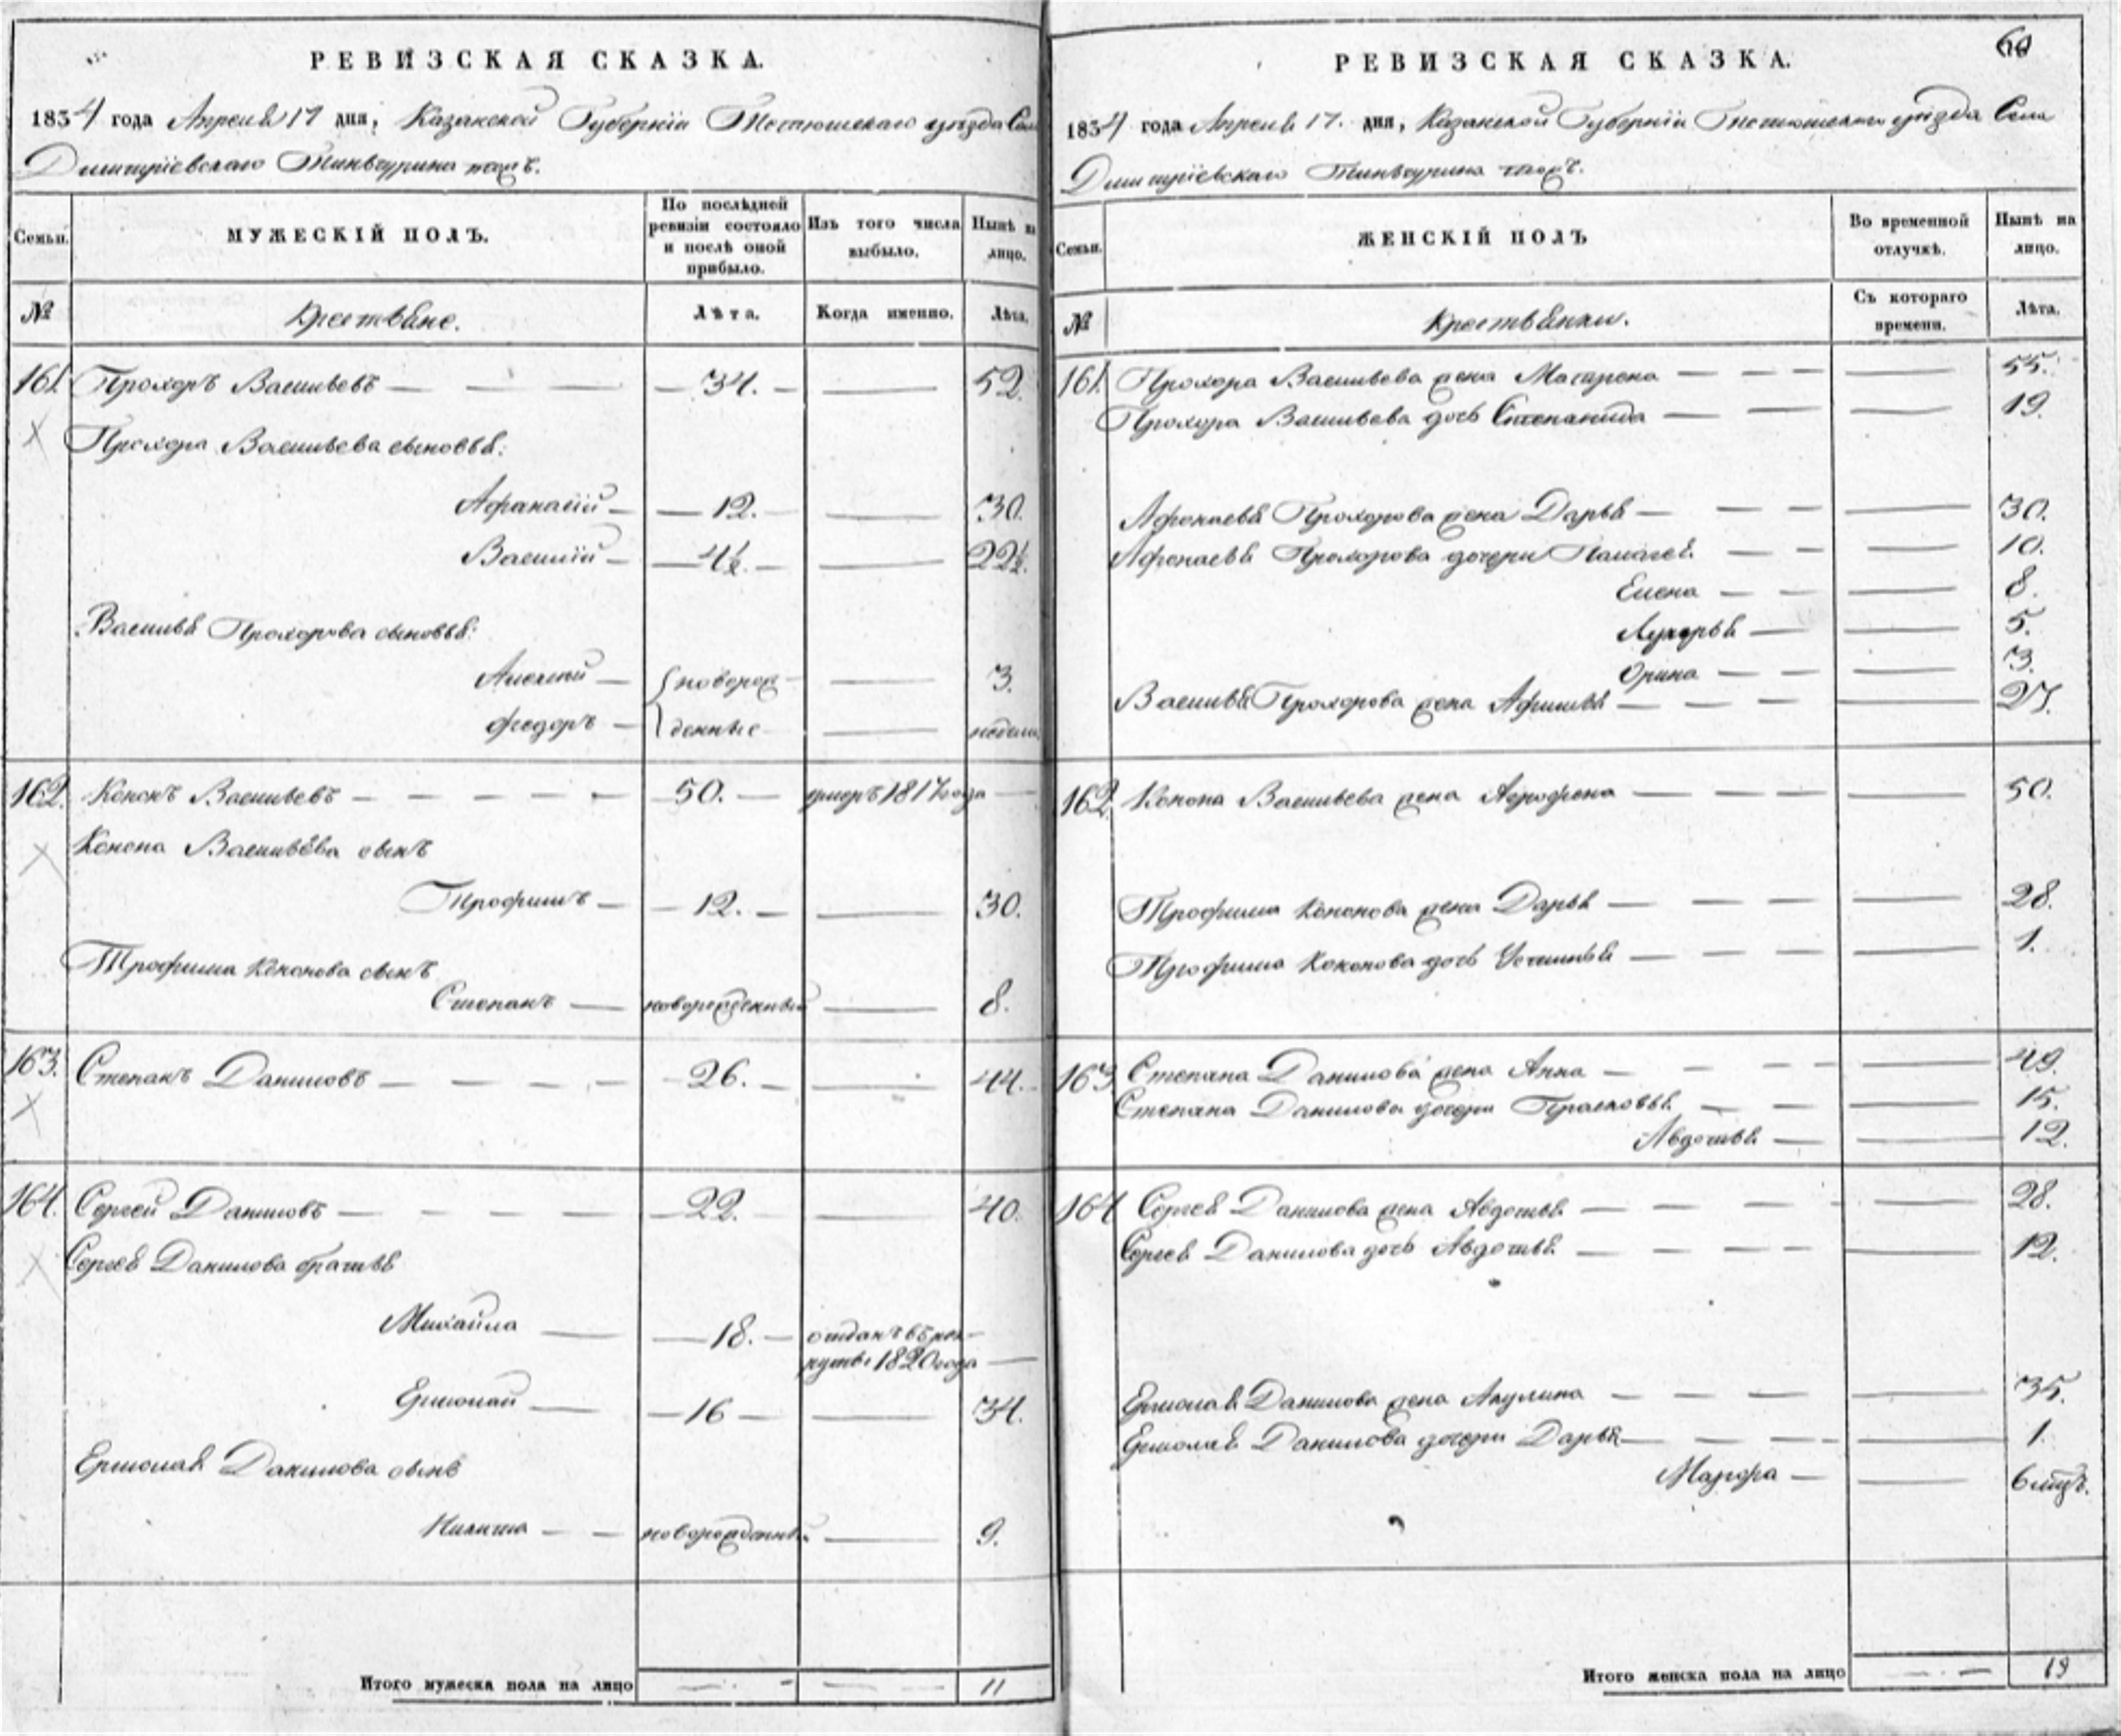 РЕВИЗСКАЯ СКАЗКА.
1834 года Апреля 17 дня, Казанской Губернiи Тетюшскаго уѣзда Села
Димитрiевскаго тожъ.
Семьи.
МУЖЕСКIЙ ПОЛЪ.
По послѣдней ревизiи состояло и послѣ оной прибыло.
Изъ того числа выбыло.
Нынѣ на лицо.
№
Крестьяне.
Лѣта.
Когда именно.
Лѣта.
161. Прохоръ Васильевъ 34. 52.
Прохора Васильева сыновья:
Афанасiй 12. 30.
Василiй 4½. 22½.
Василья Прохорова сыновья:
Алексѣй новорож- 3.
Федоръ денные недели
162. Кононъ Васильевъ 50. умеръ 1817 года
Конона Васильева сынъ
Трофимъ 12. 30.
Трофима Кононова сынъ
Степанъ новорожденный 8.
163. Степанъ Даниловъ 26. 44.
164. Сергей Даниловъ 22. 40.
Сергея Данилова братья
Михайла 18. отданъ въ рек-
руты 1820 года
Ермолай 16 34.
Ермолая Данилова сынъ
Никита новорожденный 9.
Итого мужеска пола на лицо 11
60
РЕВИЗСКАЯ СКАЗКА.
1834 года Апреля 17. дня, Казанской Губернiи Тетюшскаго уѣзда Села
Димитрiевскаго тожъ.
Семьи.
ЖЕНСКIЙ ПОЛЪ
Во временной отлучкѣ.
Нынѣ на лицо.
№
Крестьянки.
Съ котораго времени.
Лѣта.
161. Прохора Васильева жена Матрена 55.
Прохора Васильева дочь Степанида 19.
Афонасья Прохорова жена Дарья 30.
Афонасья Прохорова дочери Палагея 10.
Елена 8.
Лукерья 5.
Орина 3.
Василья Прохорова жена Афимья 27.
162. Конона Васильева жена Агрофена 50.
Трофима Кононова жена Дарья 28.
Трофима Кононова дочь Устинья 1.
163 Степана Данилова жена Анна 49.
Степана Данилова дочери Прасковья 15.
Авдотья 12.
164 Сергея Данилова жена Авдотья 28.
Сергея Данилова дочь Авдотья 12.
Ермолая Данилова жена Акулина 35.
Ермолая Данилова дочери Дарья 1.
Марфа 6 мцъ.
Итого женска пола на лицо 19